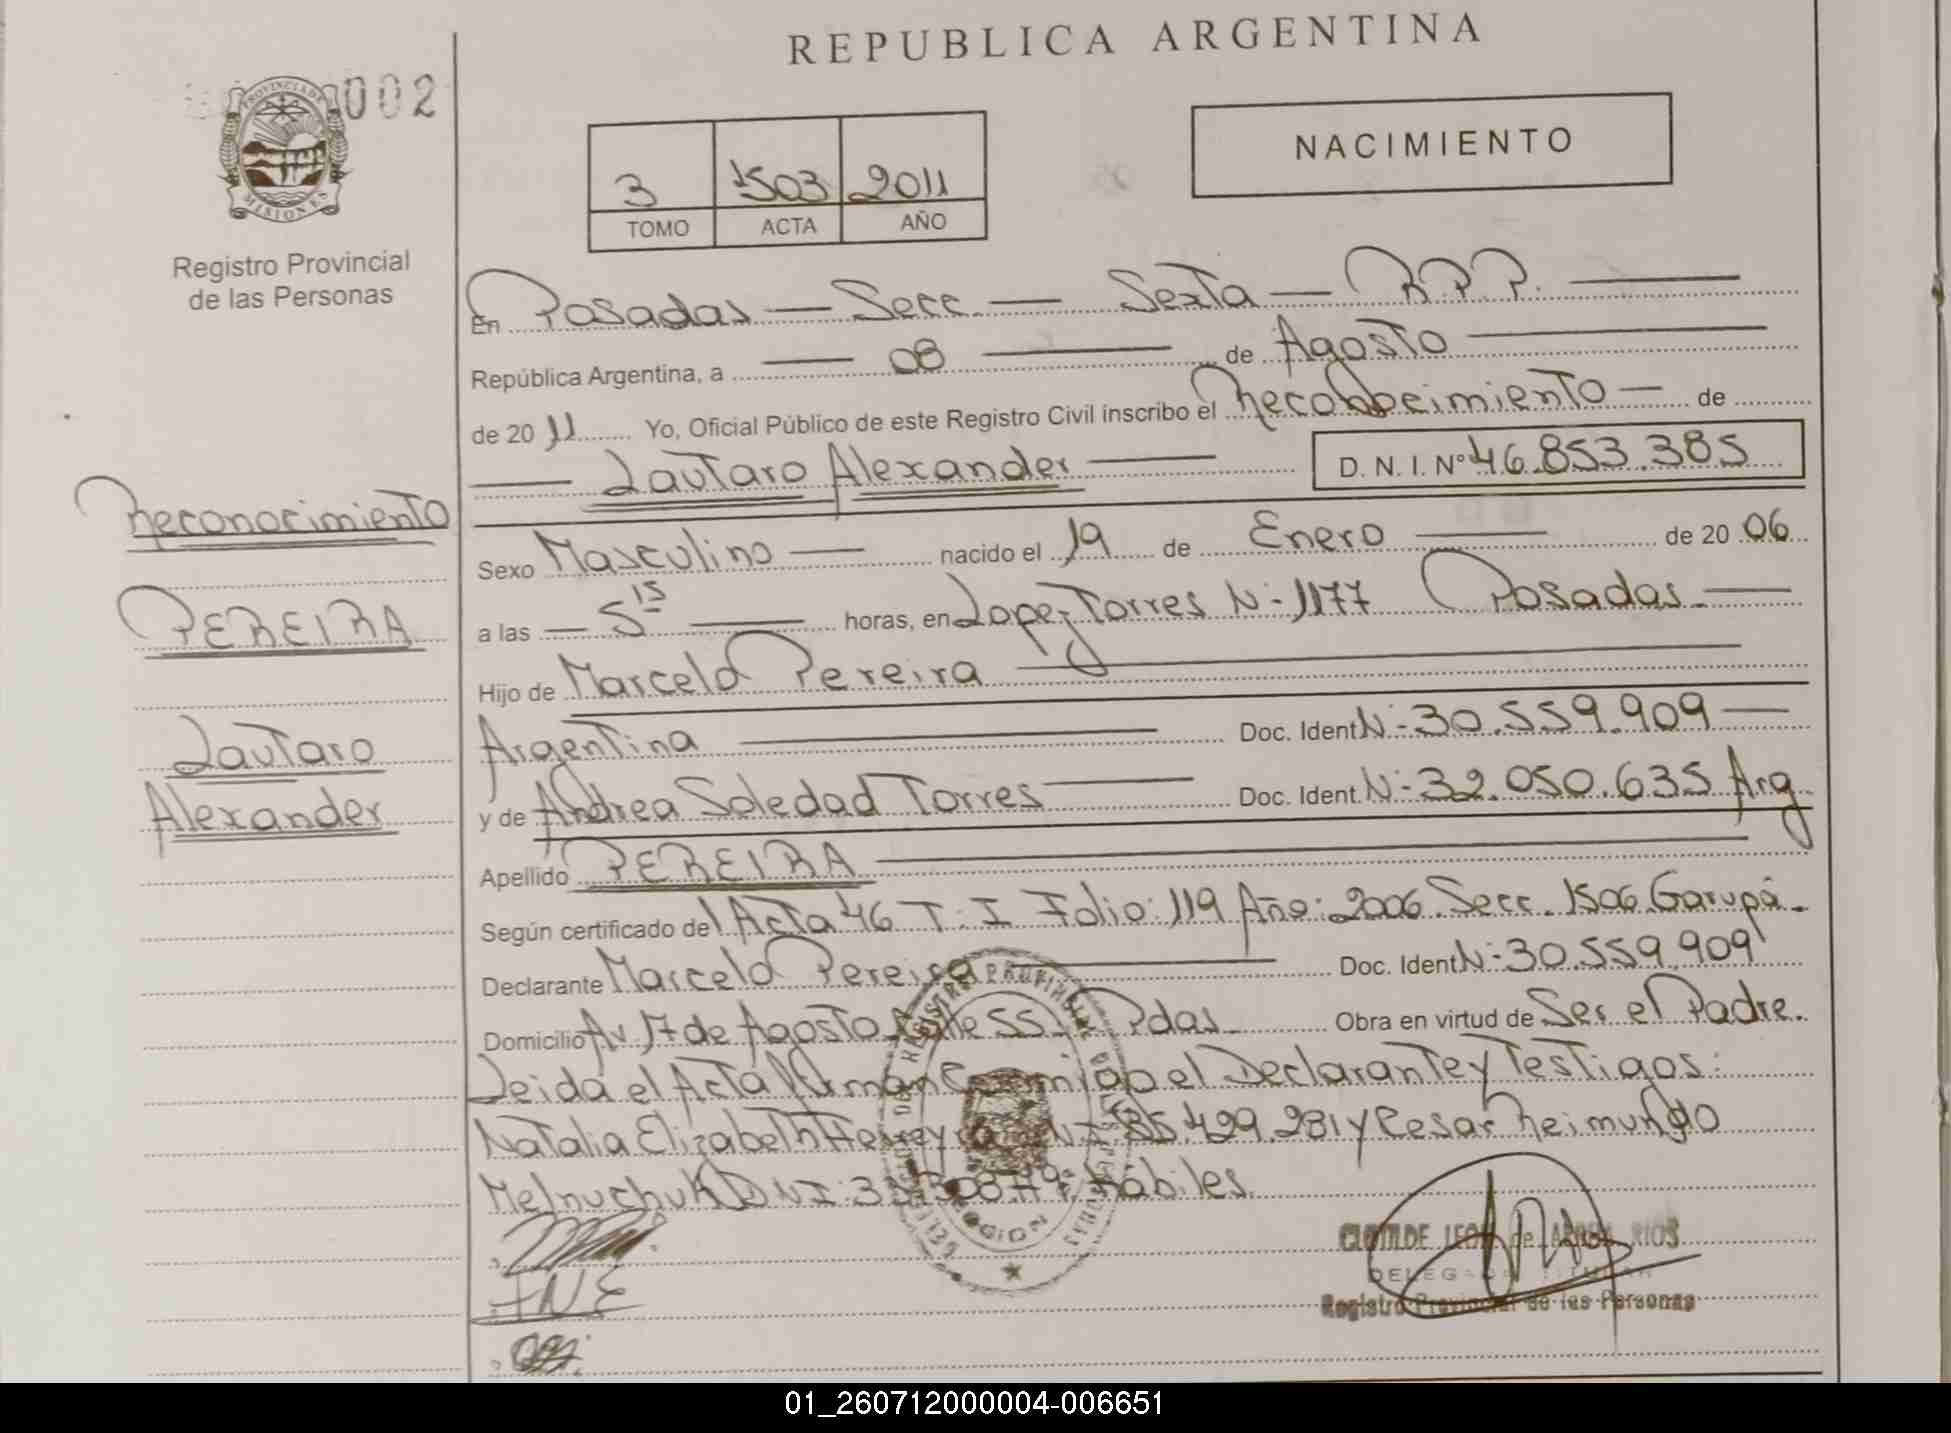 REPUBLICA ARGENTINA
002
PROVINCIA DE
MISIONES
Registro Provincial
de las Personas
NACIMIENTO
3 1503 2011
TOMO ACTA AÑO
En Posadas — Secc. — Sexta — R.P.P. —
República Argentina, a — 08 — de Agosto —
de 2011 Yo, Oficial Público de este Registro Civil inscribo el Reconocimiento — de
— Lautaro Alexander — D. N. I. Nº 46.853.385
Reconocimiento
PEREIRA
Lautaro
Alexander
Sexo Masculino — nacido el 19 de Enero — de 20 06
a las — 5 15 — horas, en Lopez Torres N-1177 Posadas. —
Hijo de Marcelo Pereira —
Argentina — Doc. Ident N-30.559.909 —
y de Andrea Soledad Torres — Doc. Ident. N-32.050.635 Arg
Apellido PEREIRA —
Según certificado del Acta 46 T: I Folio: 119 Año: 2006. Secc. 1506 Garupá.
Declarante Marcelo Pereira — Doc. Ident N-30.559.909
Domicilio Av. 17 de Agosto 55 Pdas. Obra en virtud de Ser el Padre.
Leida el Acta firman el Declarante y Testigos:
Natalia Elizabeth 35.429.281 y Cesar Reimundo
Melnuchuk DNI: Hábiles.
CLOTILDE LEON de RIOS
DELEGADA TITULAR
Registro Provincial de las Personas
01_260712000004-006651